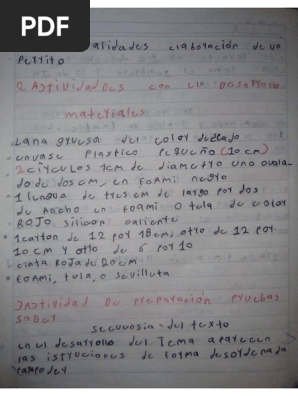 PDF
alidades elaboración de un
perrito
2. Actividades con el Desarrollo
materiales
Lana gruesa del color
envase Plastico Pequeño (10 cm)
2 circulos 1cm de diametro uno
do de dos cm, en foami negro
1 lengua de tres cm de largo por dos
de Ancho en foami O tela de color
ROJO silicon caliente
1 carton de 12 por 18cm, otro de 12 por
10 cm y otro de 6 por 10
cinta Roja de 20cm
Foami, tela, o sevilleta
3 Actividad De preparación Pruebas
saber
secuensia - del texto
en el desarrollo del Tema aparecen
las istruciones de forma desordenada